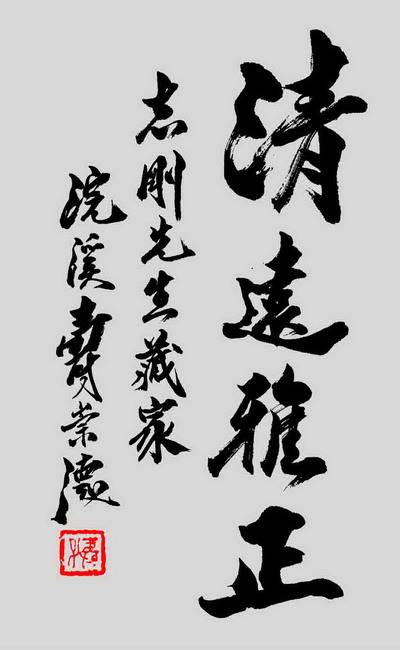 清遠雅正
志剛先生藏家
浣溪壽崇德